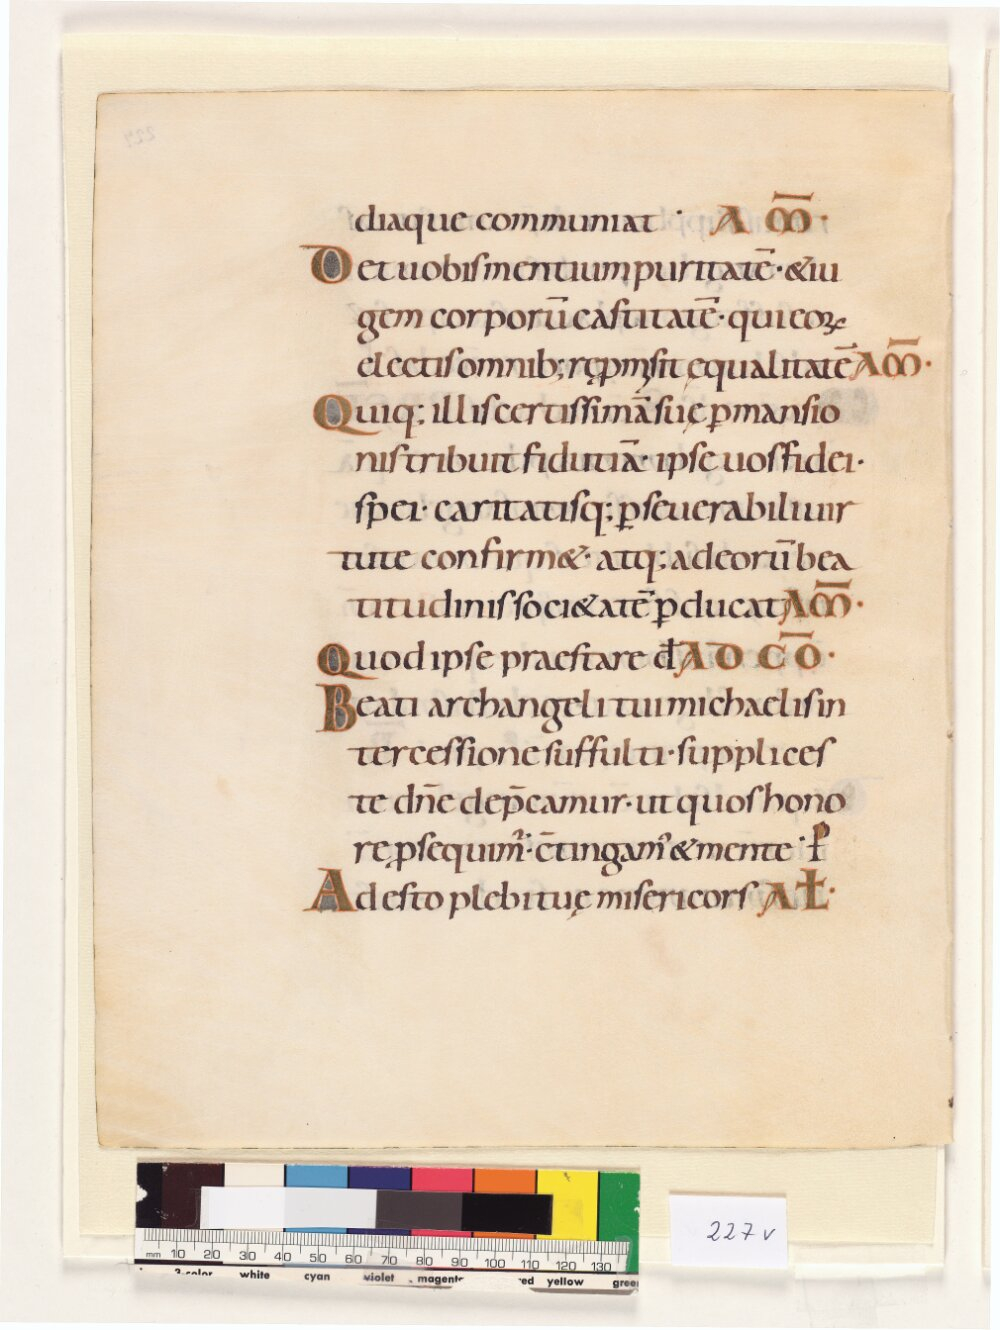 diaque communiat · AM̅·
Det uobis mentium puritatē· & iu
gem corporū castitatē· qui eoꝝ
electis omnib; repmisit ęqualitatē AM̅·
Quiq; illis certissimā suę ꝑmansio
nis tribuit fidutiā· ipse uos fidei·
spei· caritatisq; ꝑseuerabili uir
tute confirm&· atq; ad eorū bea
titudinis soci&atē ꝑducat AM̅·
Quod ipse praestare đ AD CŌ·
Beati archangeli tui michaelis in
tercessione suffulti· supplices
te dn̄e dep̄camur· ut quos hono
re ꝑsequim᷒· c̄tingam᷒ & mente · ꝑ
Adesto plebi tuę misericors AŁ·
227 v
mm 10 20 30 40 50 60 70 80 90 100 110 120 130
3-color white cyan violet magenta red yellow green